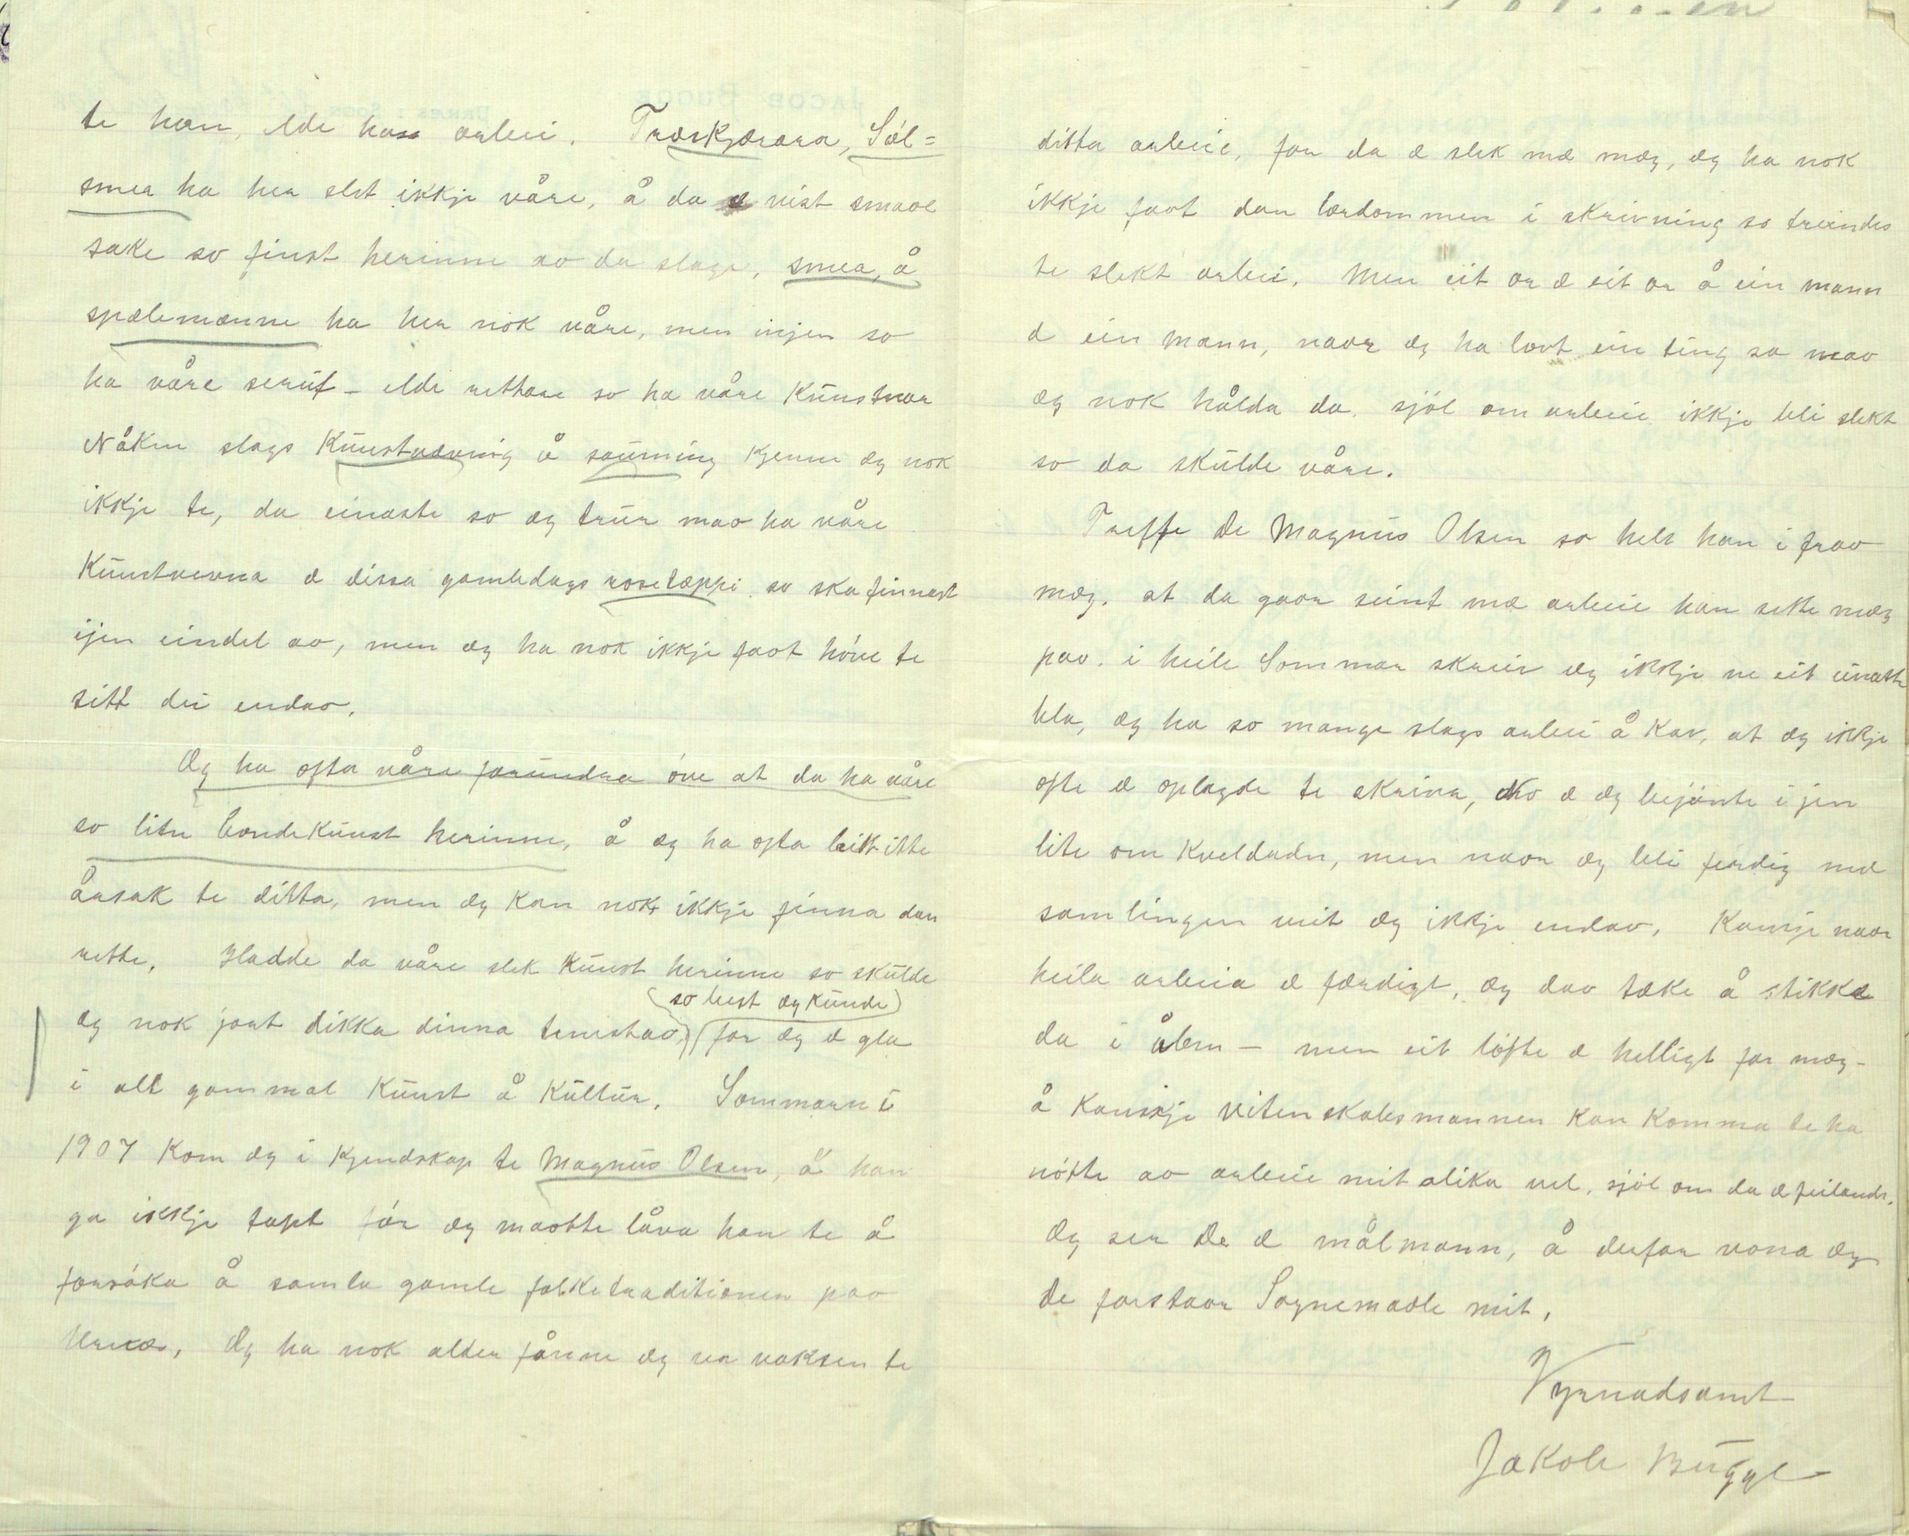 te han, elde hass arbeii. Træskjærara, Søl=
smea ha her slet ikkje våre, å da e vist smaae
sake so finst herinne av da slage, smea, å
spælemænne ha her nok våre, men injen so
ha våre seruf - elde rettare so ha våre Kunstnar
Nåken slags Kunstvæving å saúming kjenne æg nok
ikkje te, da einaste so æg trur mao ha våre
Kunstvevna æ dissa gamledags rosetæppi so ska finnast
ijen eindel ao, men æg ha nok ikkje faot høve te
sitt dei endao.
Æg ha ofta våre forundra óve at da ha våre
so lite bondekunst herinne, å æg ha ofta leikt itte
årsak te ditta, men æg kan nok ikkje finna dan
rette. Hadde da våre slek kunst herinne so skulde
(so best æg kunde)
æg nok jort dikka dinna tenestao, for æg e gla
i all gammal Kunst å Kultur. Sommarn i
1907 kom æg i kjendskap te Magnus Olsen, å han
ga ikkje tapt før æg maotte låva han te å
forsóka å samla gamle folketraditionen pao
Urnæs. Æg ha nok alder fånne æg va vaksen te
ditta arbeie, for da æ slek mæ mæg, æg ha nok
ikkje faot dan lærdommen i skrivning so treindes
te slekt arbeii. Men eit or æ eit or å ein mann
æ ein mann, naor æg ha lovt ein ting so mao
æg nok hålda da, sjøl om arbeie ikkje bli slekt
so da skulde våre.
Treffe De Magnus Olsen so hels han i frao
mæg, at da gaor seint mæ arbeie han sette mæg
pao. i heile Sommar skreiv æg ikkje ne eit einaste
bla, æg ha so mange slags arbeii å Kav, at æg ikkje
ofte æ oplagde te skriva, No æ æg bejónte ijen
lite om kveldadn, men naor æg bli ferdig mæ
samlingen veit æg ikkje endao. Kansje naor
heila arbeia æ færdigt, æg dao tæke å stikke
da i åbm - men eit løfte æ helligt for mæg -
å kansje vitenskabsmannen kan komma te ha
nøtte ao arbeie mit alika vel, sjøl om da æ feilande.
Æg ser De æ målmann, å derfor vona æg
De forstaor Sognemaole mit.
Vyrnadsamt
Jakob Bugge